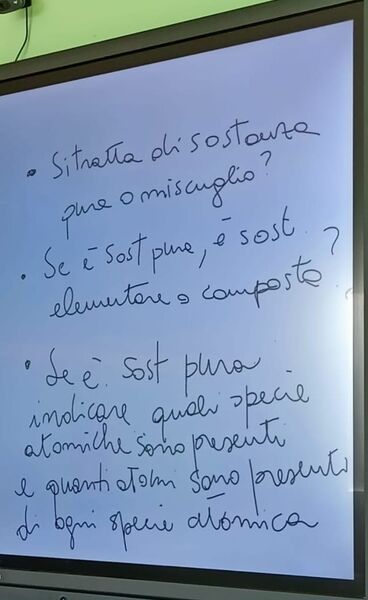 • Si tratta di sostanza
pura o miscuglio?
• Se è sost pura, è sost
elementare o composta?
• Se è sost pura
indicare quali specie
atomiche sono presenti
e quanti atomi sono presenti
di ogni specie atomica